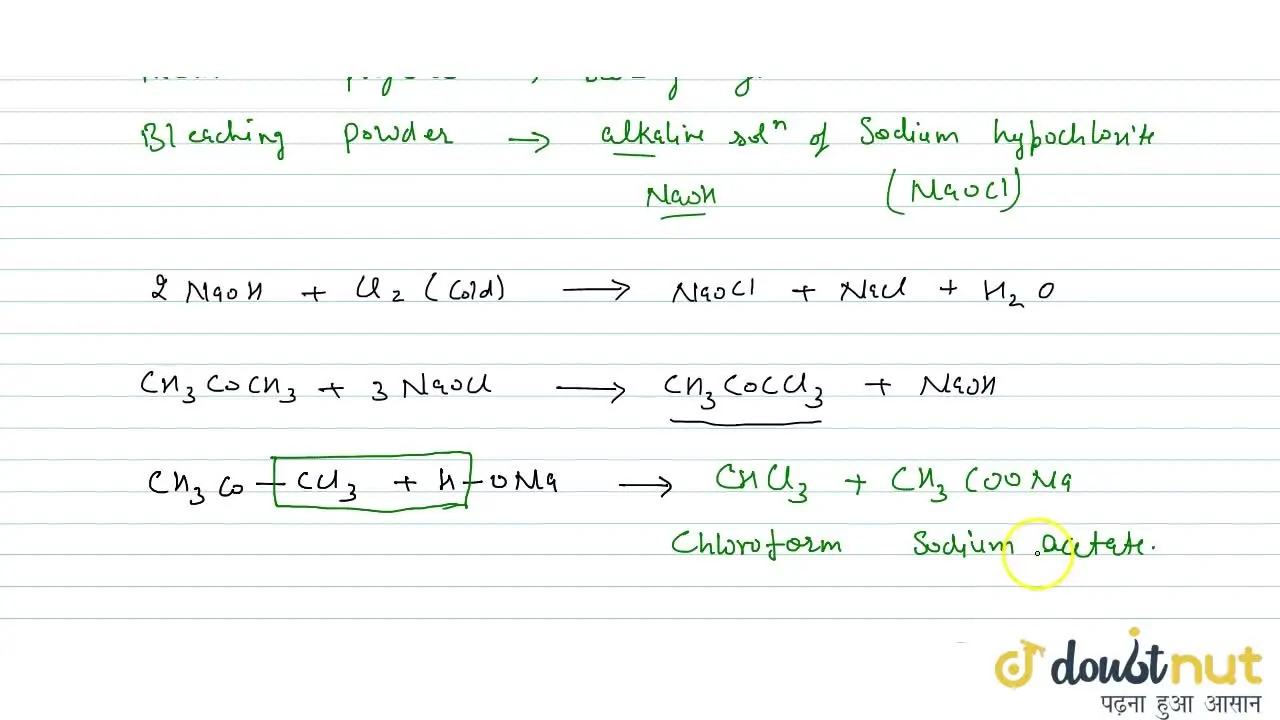 Bleaching powder → alkaline solⁿ of Sodium hypochlorite
NaOH (NaOCl)
2 NaOH + Cl₂ (Cold) → NaOCl + NaCl + H₂O
CH₃COCH₃ + 3 NaOCl → CH₃COCCl₃ + NaOH
CH₃CO–CCl₃ + H–ONa → CHCl₃ + CH₃COONa
Chloroform Sodium acetate.
doubtnut
पढ़ना हुआ आसान